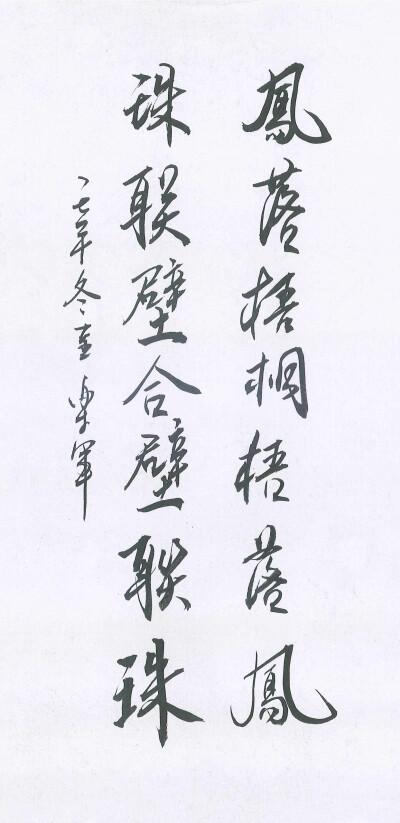 鳳落梧桐梧落鳳
珠联壁合壁联珠
一七年冬至 乐军